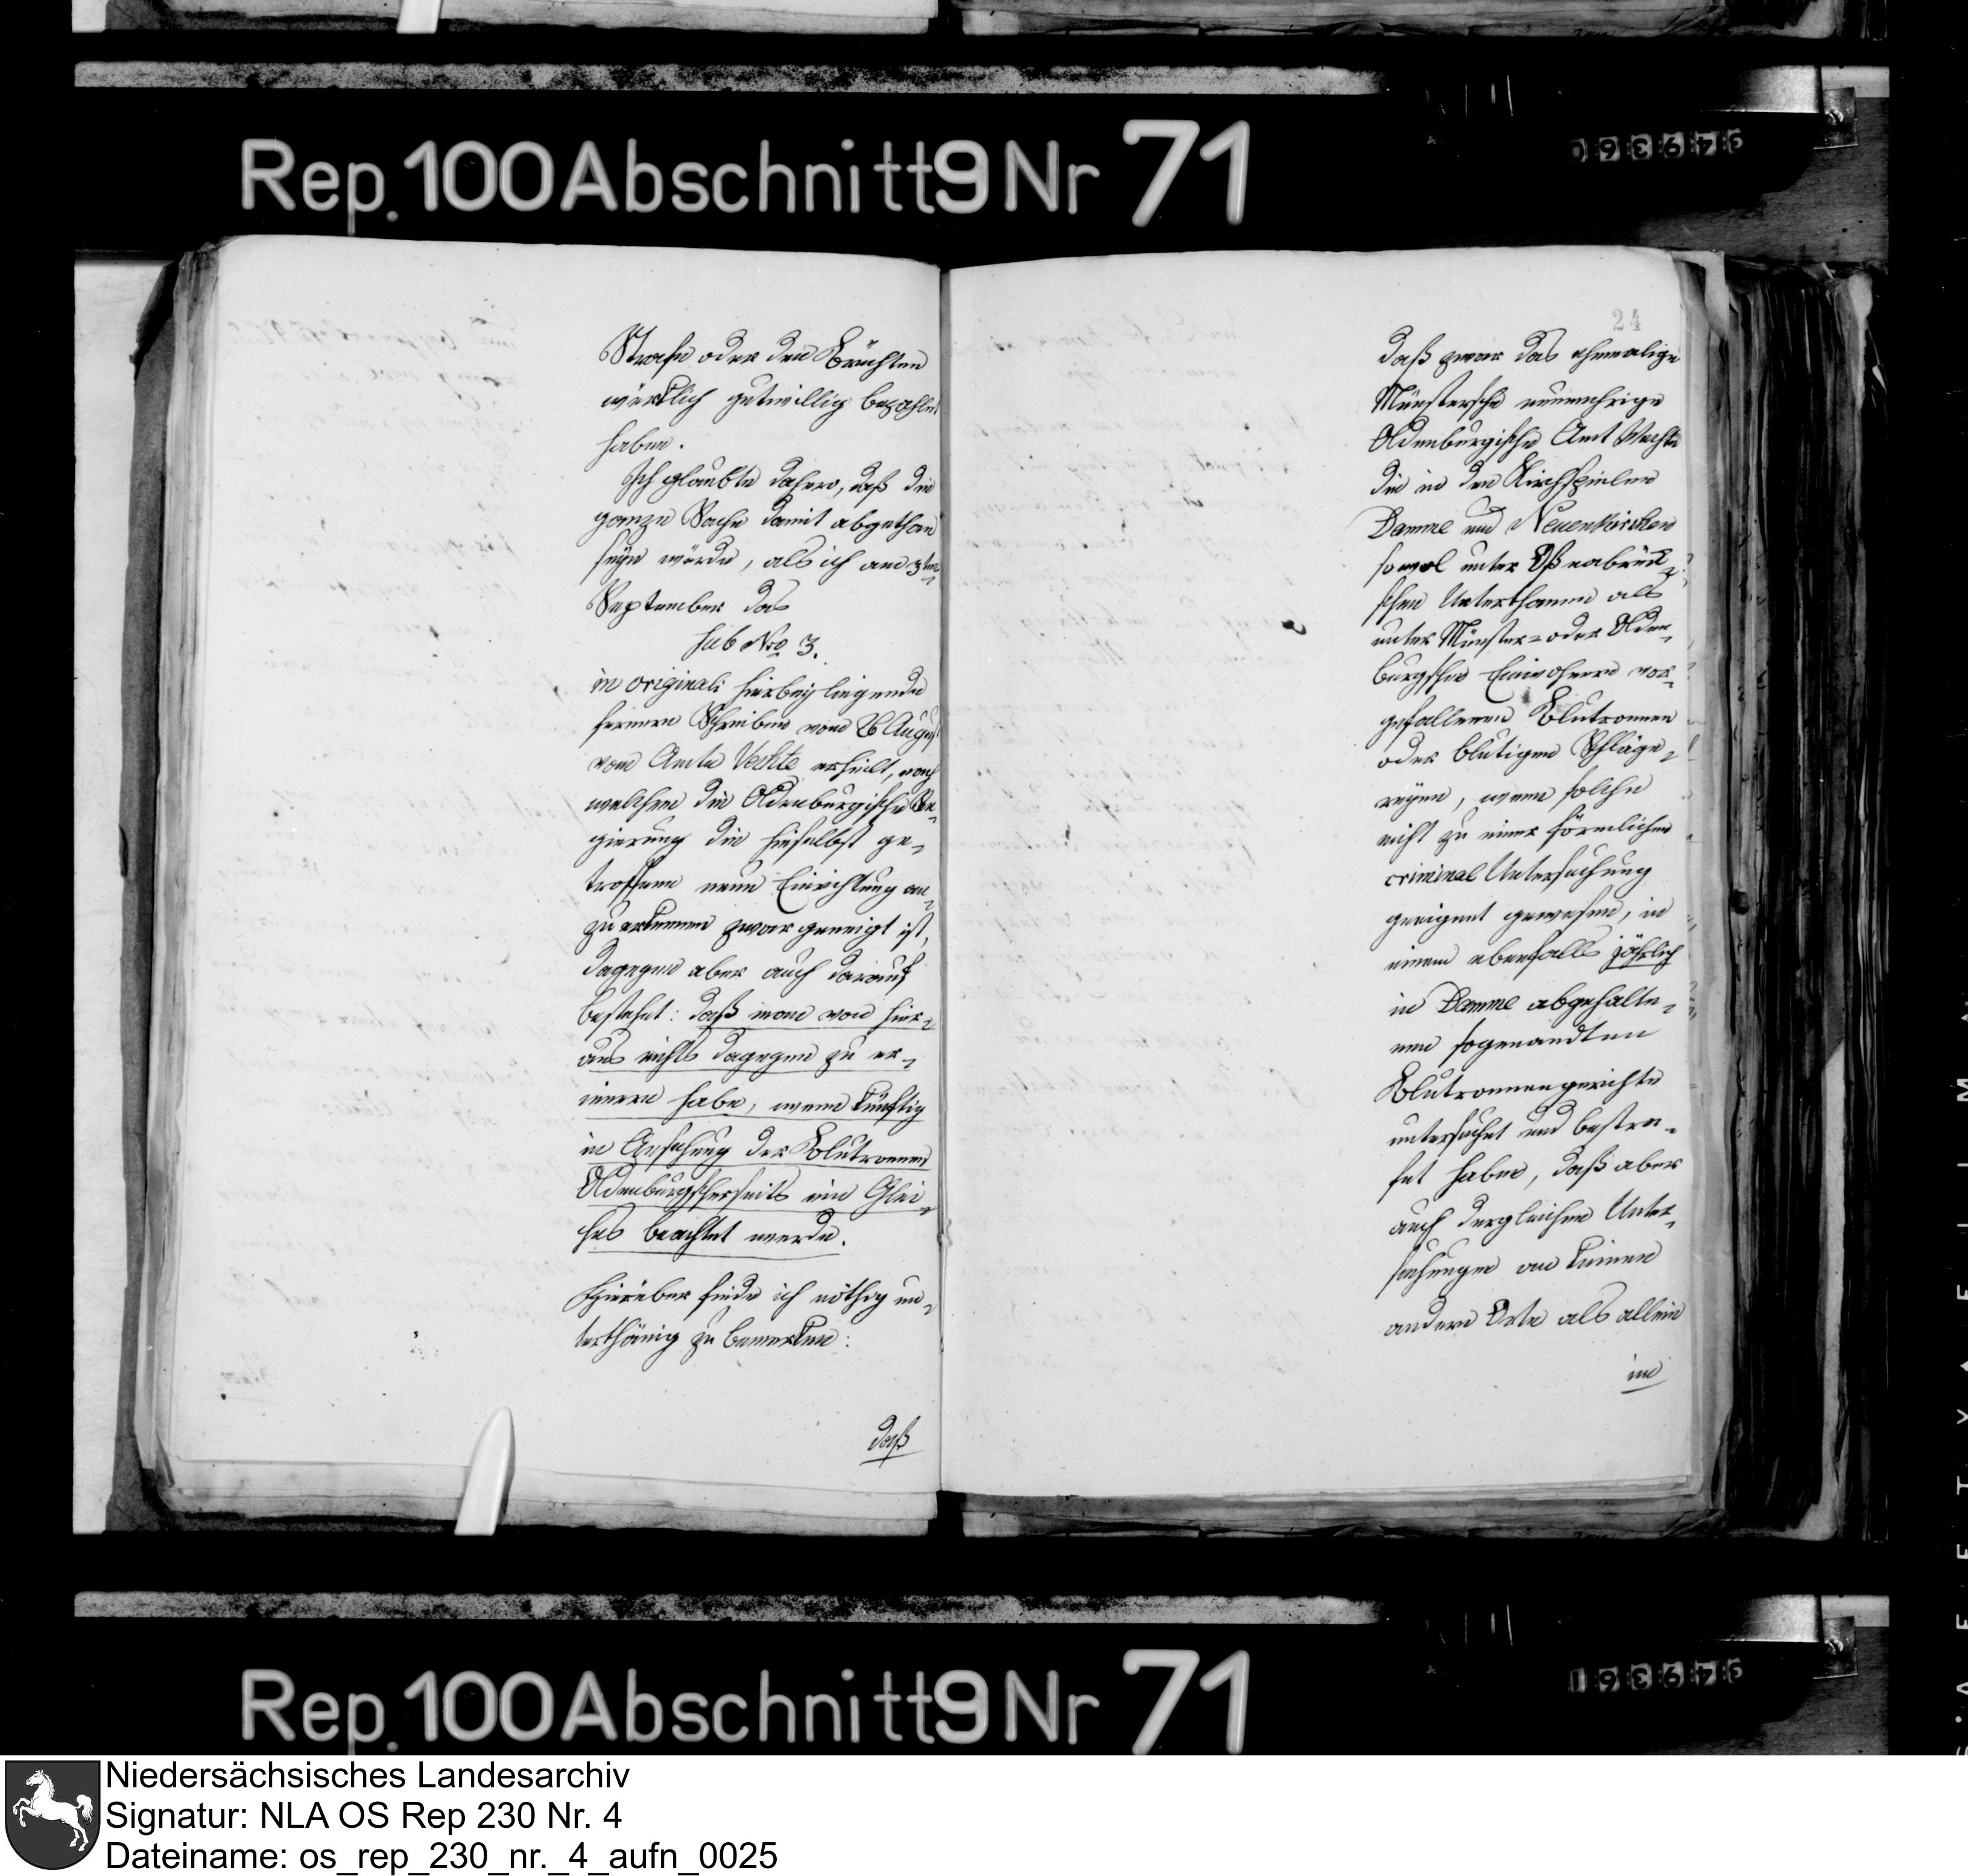 Rep. 100 Abschnitt 9 Nr 71
Strafe oder den Brüchten
würklich gutwillig bezahlet
haben.
Ich glaubte dahero, daß die
ganze Sache damit abgethan
seyn würde, als ich am 3ten
September das
sub Nro 3.
in originali hierbey liegende
fernere Schreiben vom 26 August
vom Amte Vechte erhielt, nach
welchem die Oldenburgische Re-
gierung die hieselbst ge-
troffene neue Einrichtung an-
zuerkennen zwar geneigt ist,
dagegen aber auch darauf
bestehet: daß man von hier-
aus nichts dagegen zu er-
innern habe, wenn künftig
in Ansehung der Blutronnen
Oldenburgscherseits ein Glei-
ches beachtet werde.
Hierüber finde ich nöthig un-
terthänig zu bemerken:
daß
24
daß zwar das ehemalige
Münstersche nunmehrige
Oldenburgische Amt Vechte
die in den Kirchspielen
Damme und Neuenkirchen
sowol unter Oßnabrück-
schen Unterthanen als
unter Münster- oder Olden-
burgschen Einwohnern vor-
gefallenen Blutronnen
oder blutigen Schläge-
reyen, wenn solche
nicht zu einer förmlichen
criminal Untersuchung
geeignet gewesen, in
einem ebenfalls jährlich
in Damme abgehalte-
nen sogenandten
Blutronnengerichte
untersuchet und bestra-
fet haben, daß aber
auch dergleichen Unter-
suchungen an keinem
andern Orte als allein
im
Rep. 100 Abschnitt 9 Nr 71
Niedersächsisches Landesarchiv
Signatur: NLA OS Rep 230 Nr. 4
Dateiname: os_rep_230_nr._4_aufn_0025